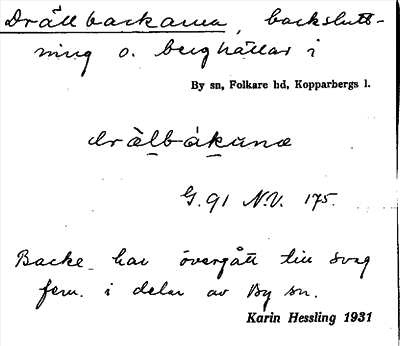 Drällbackarna, backslutt-
ning o. berghällar i
By sn, Folkare hd, Kopparbergs l.
drä̀lbákana
G. 91 N.V. 175.
Backe har övergått till svag
fem. i delar av By sn.
Karin Hessling 1931